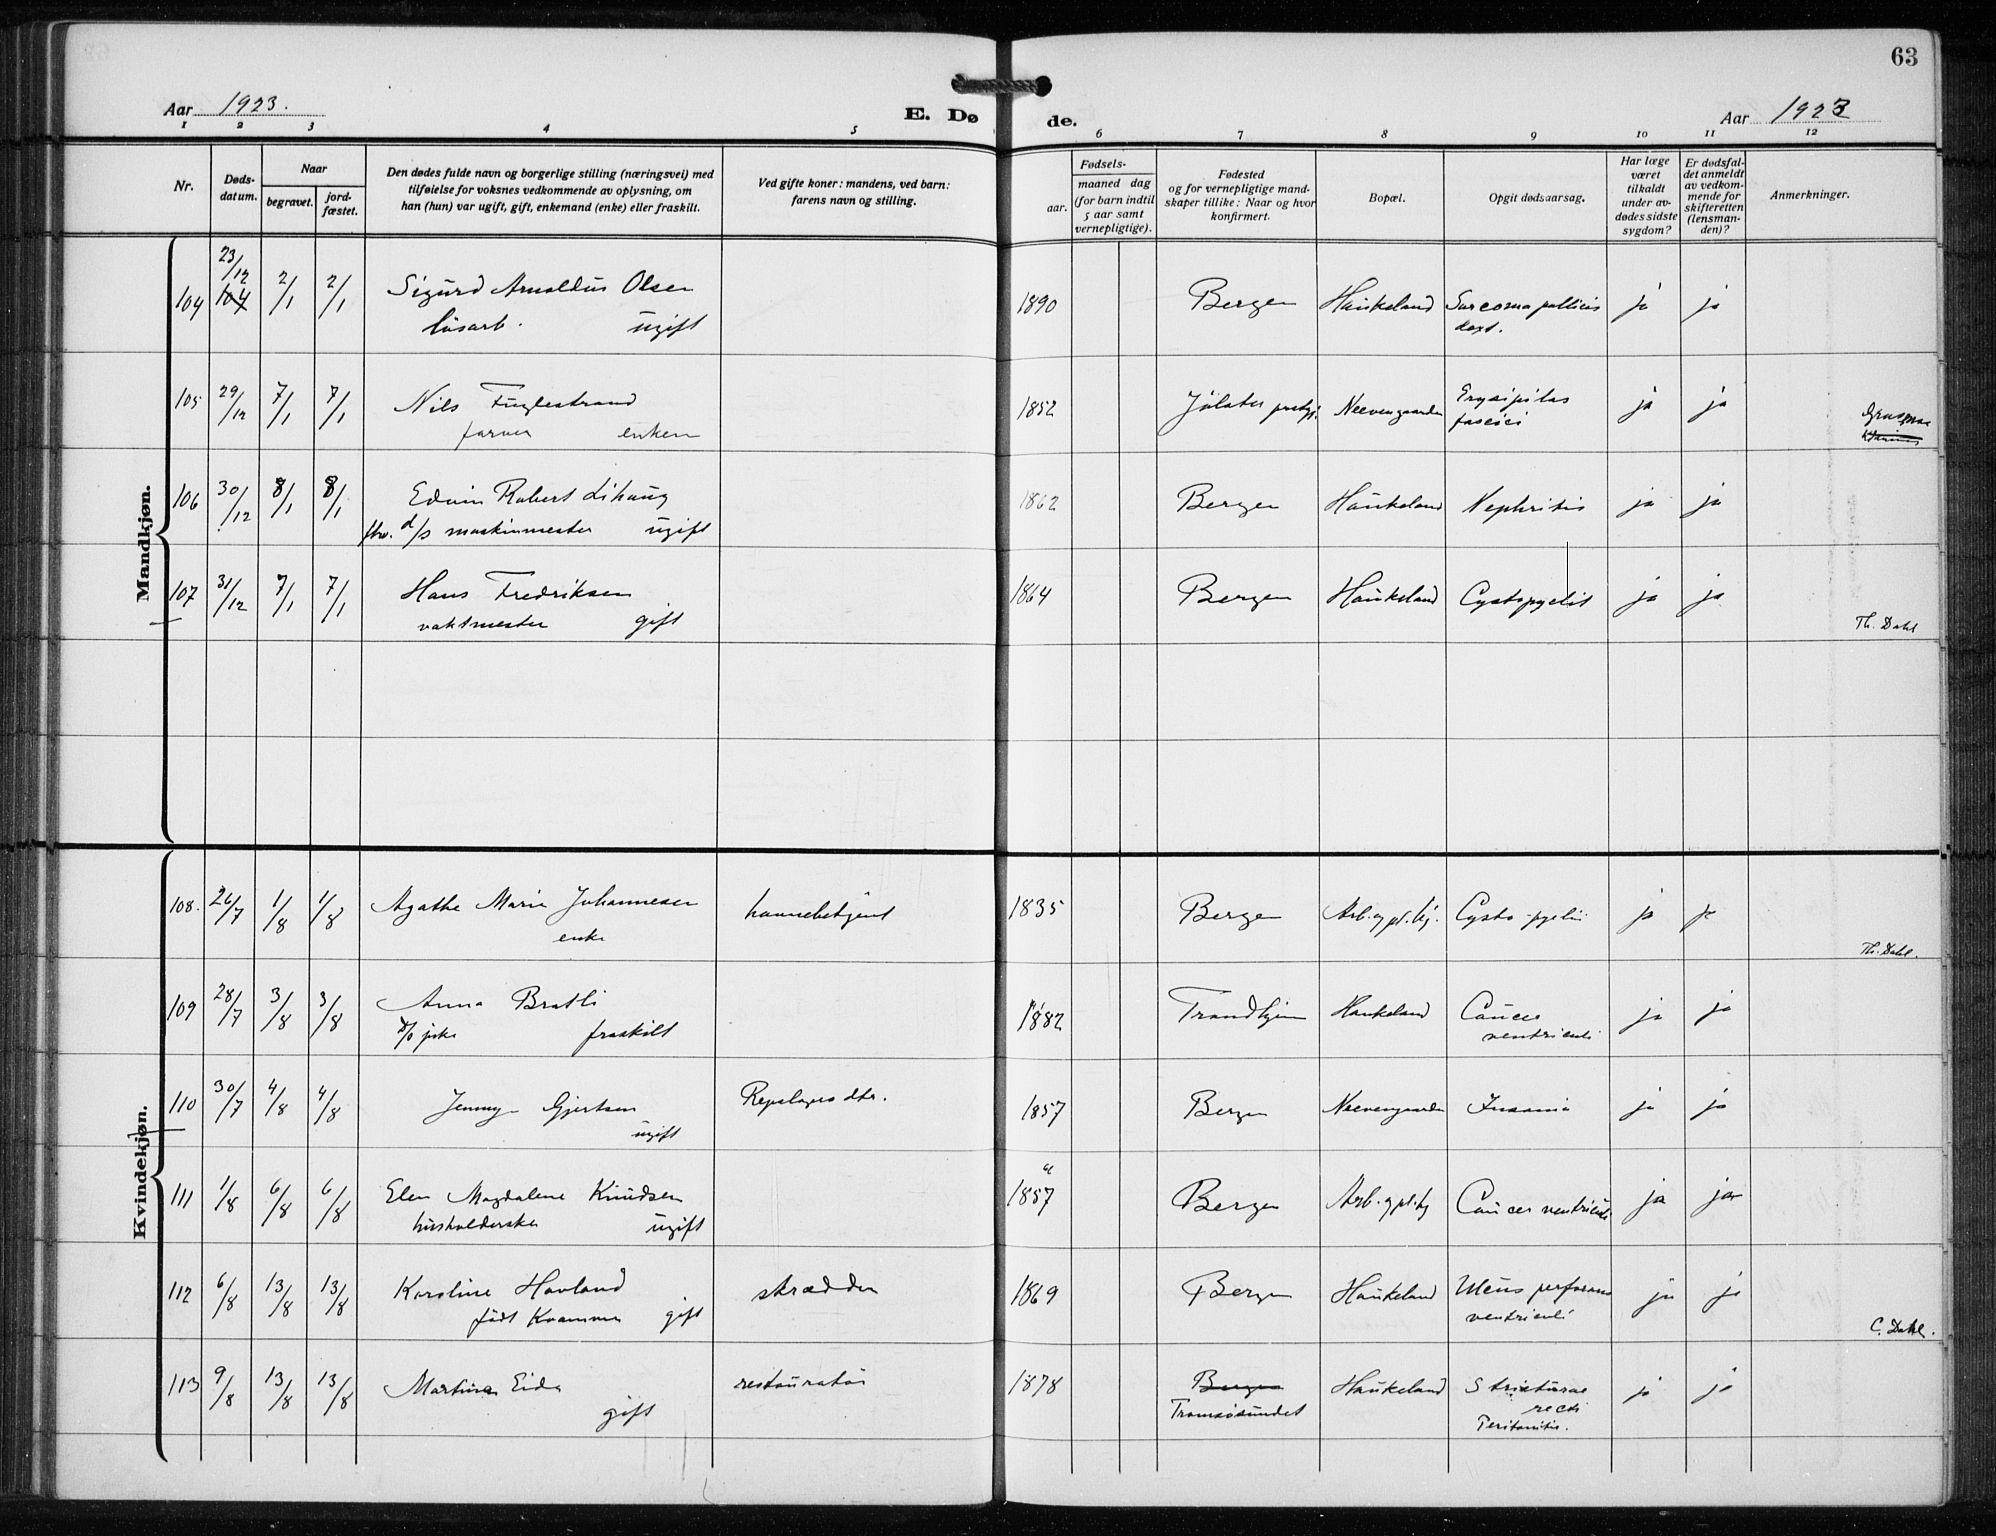 63
Aar 1923.
E. Dø de.
Aar 1923
1 2 3 4 5 6 7 8 9 10 11 12
Nr.
Døds-
datum.
Naar
begravet.
jord-
fæstet.
Den dødes fulde navn og borgerlige stilling (næringsvei) med
tilføielse for voksnes vedkommende av oplysning, om
han (hun) var ugift, gift, enkemand (enke) eller fraskilt.
Ved gifte koner: mandens, ved barn:
farens navn og stilling.
Fødsels-
aar.
maaned dag
(for barn indtil
5 aar samt
vernepligtige).
Fødested
og for vernepligtige mand-
skaper tillike: Naar og hvor
konfirmert.
Bopæl.
Opgit dødsaarsag.
Har læge
været
tilkaldt
under av-
dødes sidste
sygdom?
Er dødsfal-
det anmeldt
av vedkom-
mende for
skifteretten
(lensman-
den)?
Anmerkninger.
Mandkjøn.
104 23/12 104 2/1 2/1 Sigurd Arnoldus Olsen 1890 Bergen Haukeland Sarcoma pollicis ja ja
løsarb. ugift dext.
105 29/12 7/1 7/1 Nils Fuglestrand 1852 Jølster prstgj. Neevengaarden Erysipelas ja ja
farver enkem faciei
106 30/12 8/1 8/1 Edvin Robert Lihaug 1862 Bergen Haukeland Nephritis ja ja
fhv. d/s maskinmester ugift
107 31/12 7/1 7/1 Hans Fredriksen 1864 Bergen Haukeland Cystopyelit ja ja
vaktmester gift Th. Dahl
Kvindekjøn.
108. 26/7 1/8 1/8 Agathe Marie Johannesen havnebetjent 1835 Bergen Arb. og pl. hj. Cysto-pyelit ja ja
enke Th. Dahl.
109 28/7 3/8 3/8 Anna Bratli 1882 Trondhjem Haukeland Cancer ja ja
fraskilt ventriculi
110 30/7 4/8 4/8 Jenny Gjertsen Repslagers dtr. 1857 Bergen Neevengaarden Insania ja ja
ugift
111 1/8 6/8 6/8 Elen Magdalene Knudsen 1857 Bergen Arb. og pl. hj Cancer ventriculi ja ja
husholderske ugift
112 6/8 13/8 13/8 Karoline Havland skrædder 1869 Bergen Haukeland Ulcus perforans ja ja
født Kvamme gift ventriculi C. Dahl.
113 9/8 13/8 13/8 Martina Eide restauratør 1878 Bergen Haukeland Stricturae ja ja
gift Tromsøsundet recti
Peritonitis.